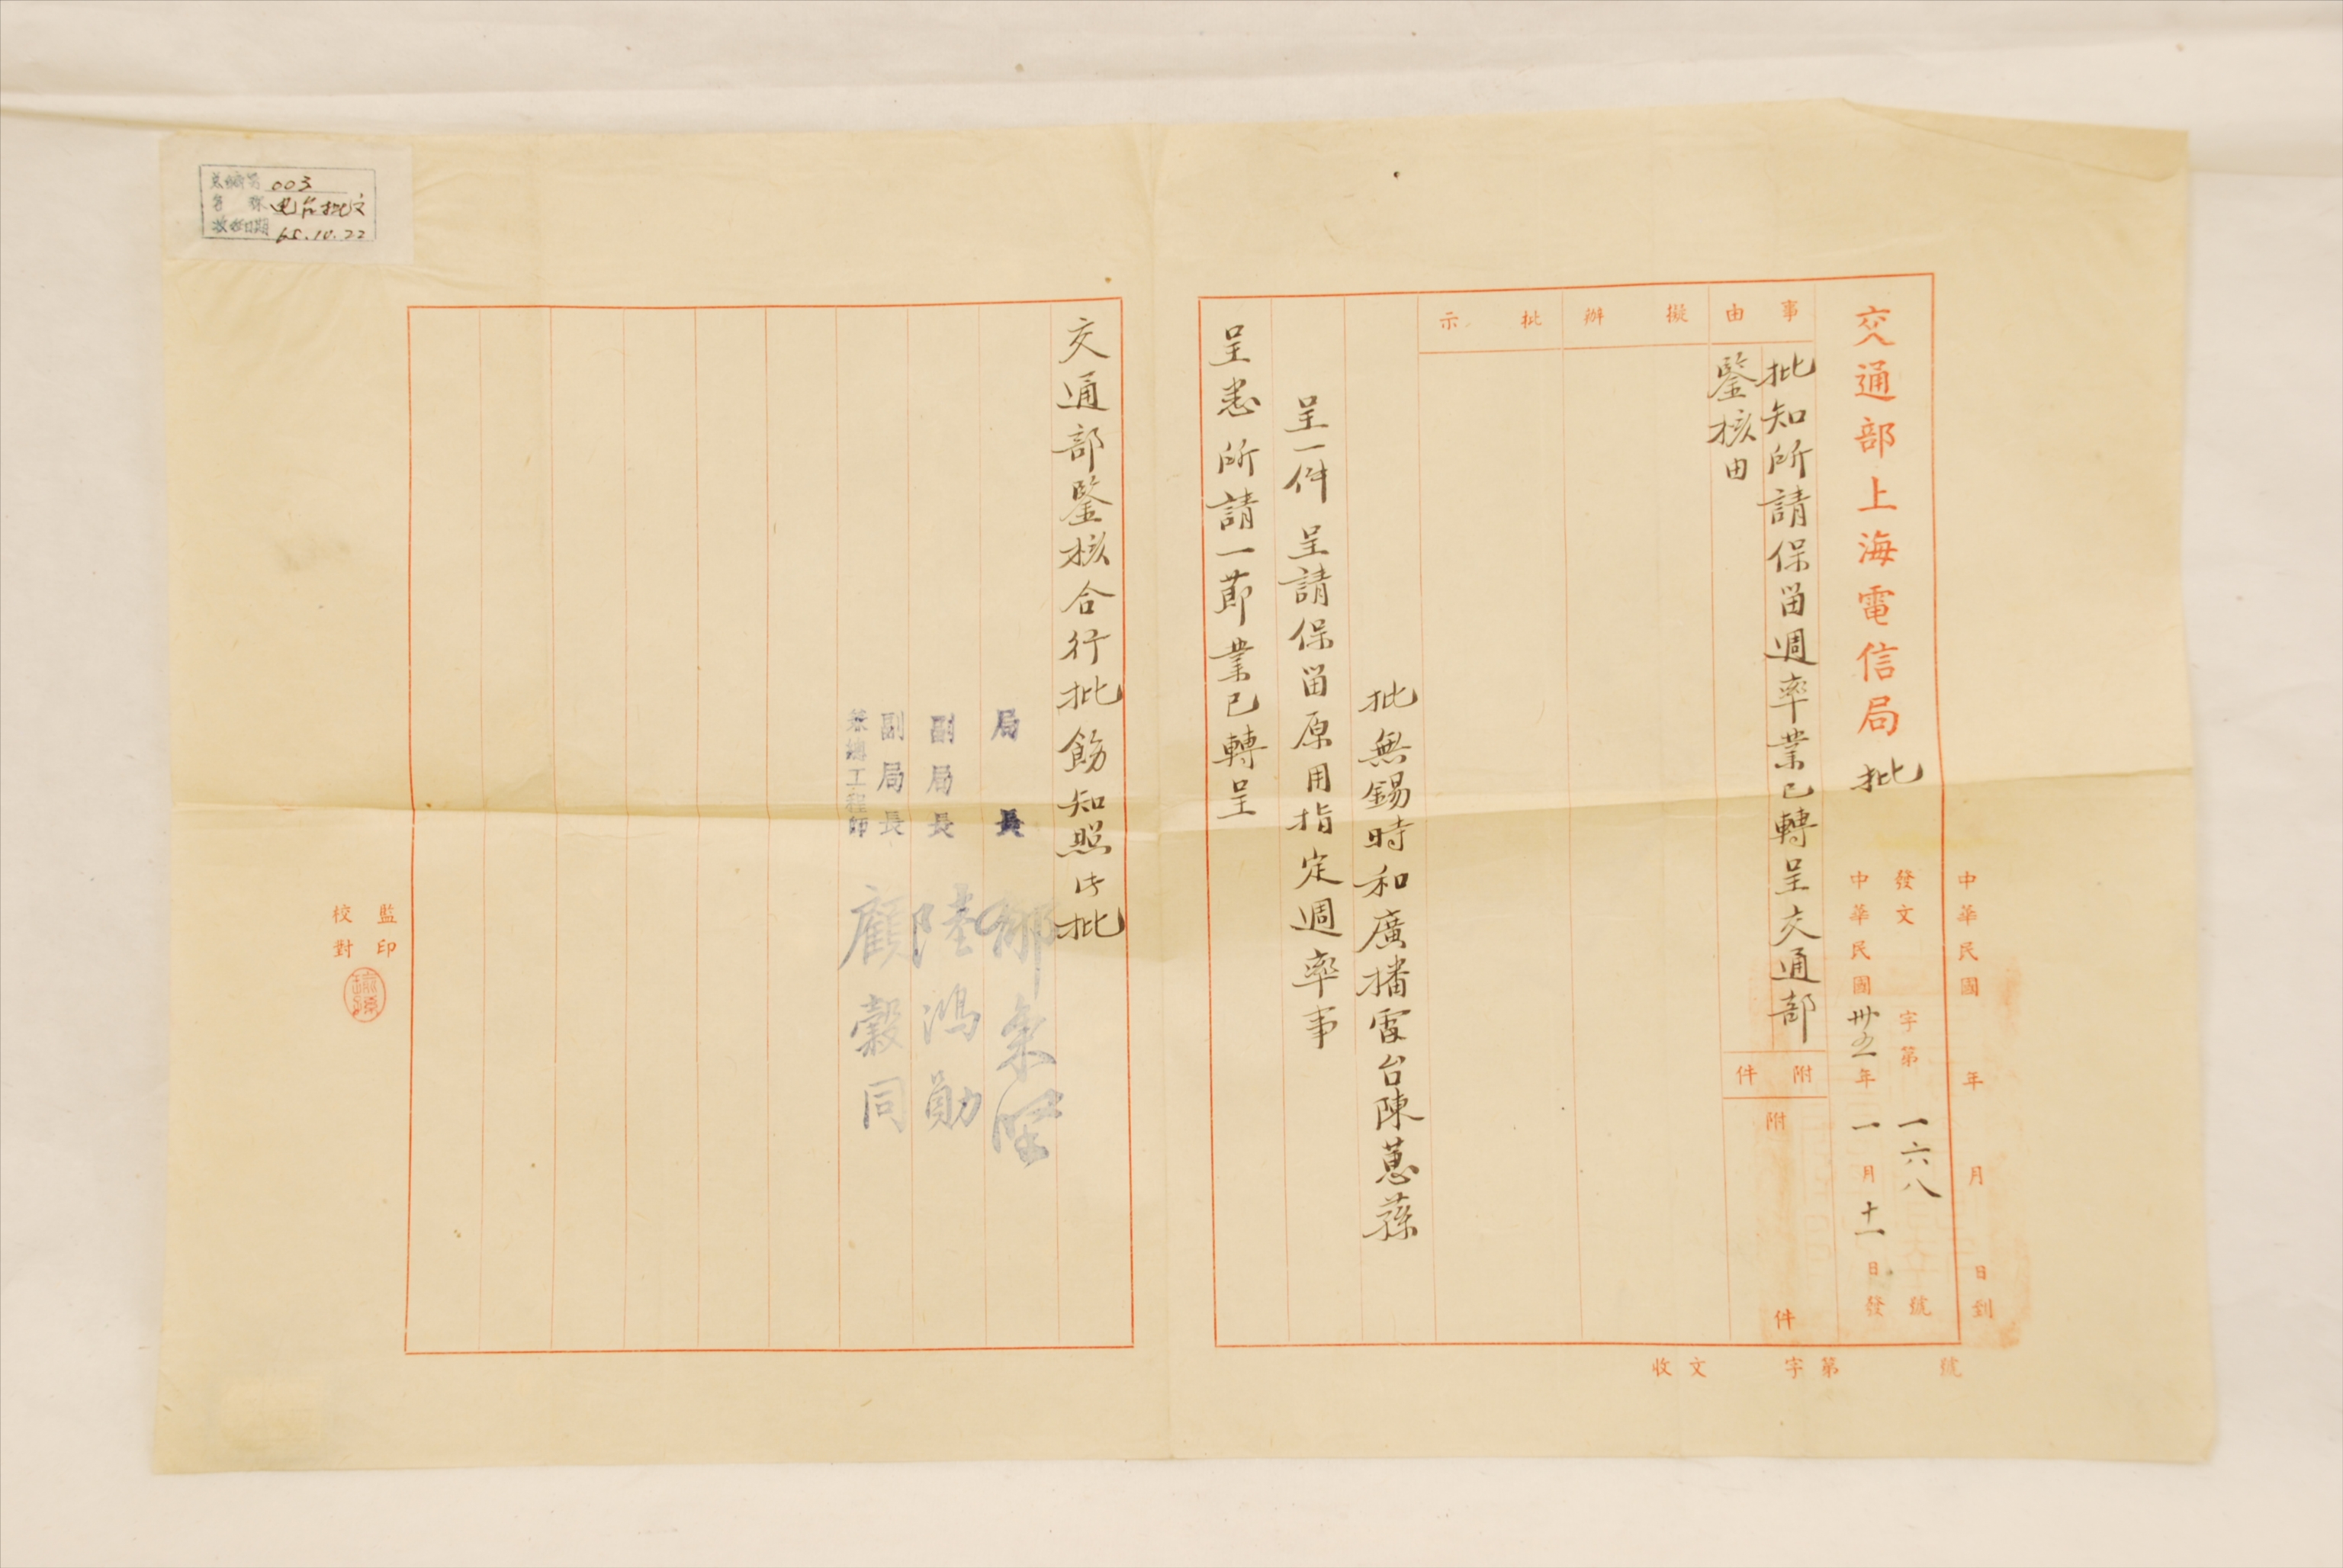 中華民國 年 月 日到
收文 字第 號
交通部上海電信局批
發文 字第一六八號
中華民國卅五年一月十一日發
事由
批知所請保留週率業已轉呈交通部
鑒核由
附件
附 件
擬辦
批示
批無錫時和廣播電台陳蕙蓀
呈一件 呈請保留原用指定週率事
呈悉所請一節業已轉呈
交通部鑒核合行批飭知照此批
局長 郁秉堅
副局長 陸鴻勛
副局長
兼總工程師 顧穀同
監印
校對
总编号 003
名称 电台批文
收到日期 65.10.22